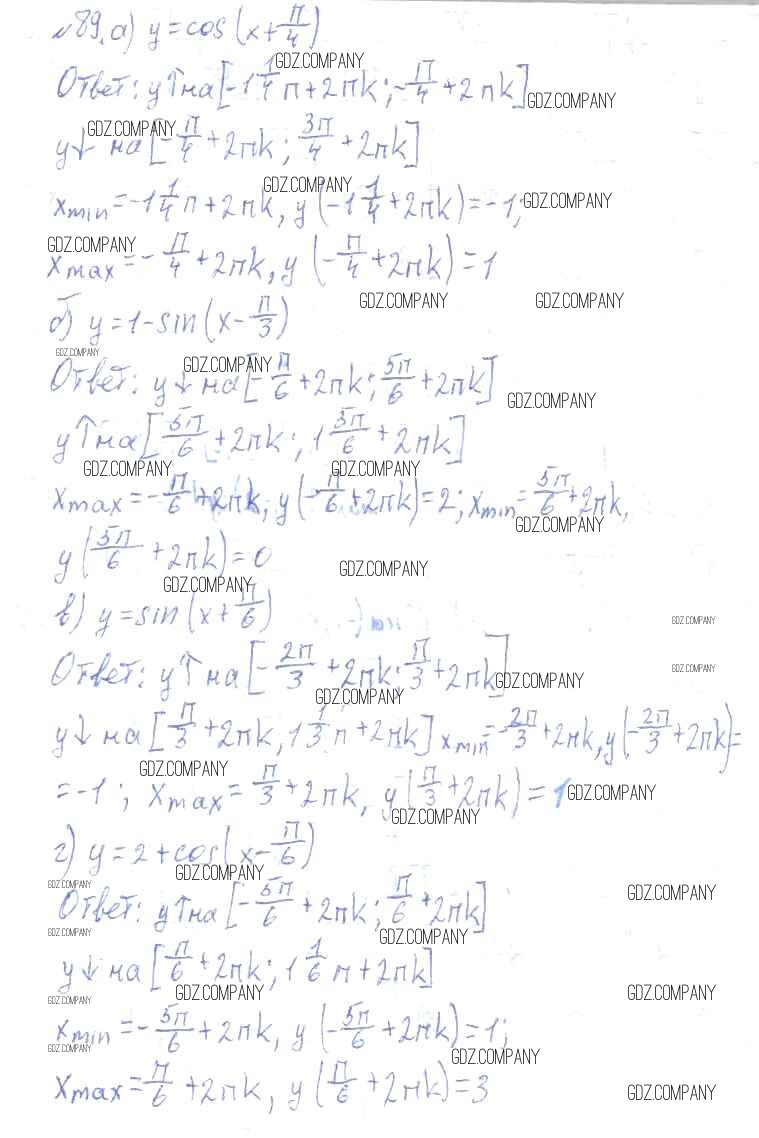 №89. а) y = cos (x + π/4)
GDZ.COMPANY
Ответ: y↑ на [-1 1/4 π + 2πk; -π/4 + 2πk]
GDZ.COMPANY
GDZ.COMPANY
y↓ на [-π/4 + 2πk; 3π/4 + 2πk]
GDZ.COMPANY
xmin = -1 1/4 π + 2πk, y (-1 1/4 + 2πk) = -1;
GDZ.COMPANY
GDZ.COMPANY
xmax = -π/4 + 2πk, y (-π/4 + 2πk) = 1
GDZ.COMPANY GDZ.COMPANY
б) y = 1 - sin (x - π/3)
GDZ.COMPANY
GDZ.COMPANY
Ответ: y↓ на [-π/6 + 2πk; 5π/6 + 2πk]
GDZ.COMPANY
y↑ на [5π/6 + 2πk; 1 5π/6 + 2πk]
GDZ.COMPANY GDZ.COMPANY
xmax = -π/6 + 2πk; y (-π/6 + 2πk) = 2; xmin = 5π/6 + 2πk,
GDZ.COMPANY
y (5π/6 + 2πk) = 0
GDZ.COMPANY
GDZ.COMPANY
в) y = sin (x + π/6)
GDZ.COMPANY
Ответ: y↑ на [-2π/3 + 2πk; π/3 + 2πk]
GDZ.COMPANY
GDZ.COMPANY
GDZ.COMPANY
y↓ на [π/3 + 2πk, 1 1/3 π + 2πk] xmin = -2π/3 + 2πk, y (-2π/3 + 2πk) =
GDZ.COMPANY
= -1; xmax = π/3 + 2πk, y (π/3 + 2πk) = 1
GDZ.COMPANY
GDZ.COMPANY
г) y = 2 + cos (x - π/6)
GDZ.COMPANY
GDZ.COMPANY
GDZ.COMPANY
Ответ: y↑ на [-5π/6 + 2πk; π/6 + 2πk]
GDZ.COMPANY
GDZ.COMPANY
y↓ на [π/6 + 2πk; 1 1/6 π + 2πk]
GDZ.COMPANY
GDZ.COMPANY
GDZ.COMPANY
xmin = -5π/6 + 2πk, y (-5π/6 + 2πk) = 1;
GDZ.COMPANY
GDZ.COMPANY
xmax = π/6 + 2πk, y (π/6 + 2πk) = 3
GDZ.COMPANY